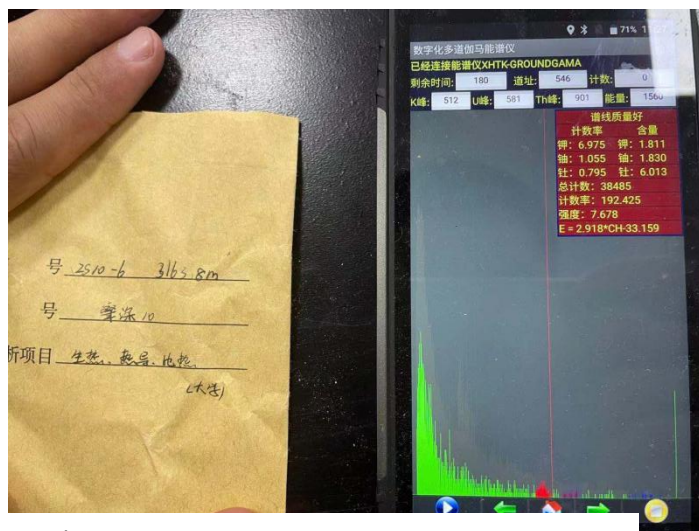 号 ZS10-6 3163.8m
号 深10
析项目 生热、热导、比热
(大学)
71% 1
数字化多道伽马能谱仪
已经连接能谱仪XHTK-GROUNDGAMA
剩余时间: 180 道址: 546 计数: 0
K峰: 512 U峰: 581 Th峰: 901 能量: 1560
谱线质量好
计数率 含量
钾: 6.975 钾: 1.811
铀: 1.055 铀: 1.830
钍: 0.795 钍: 6.013
总计数: 38485
计数率: 192.425
强度: 7.678
E = 2.918*CH-33.159